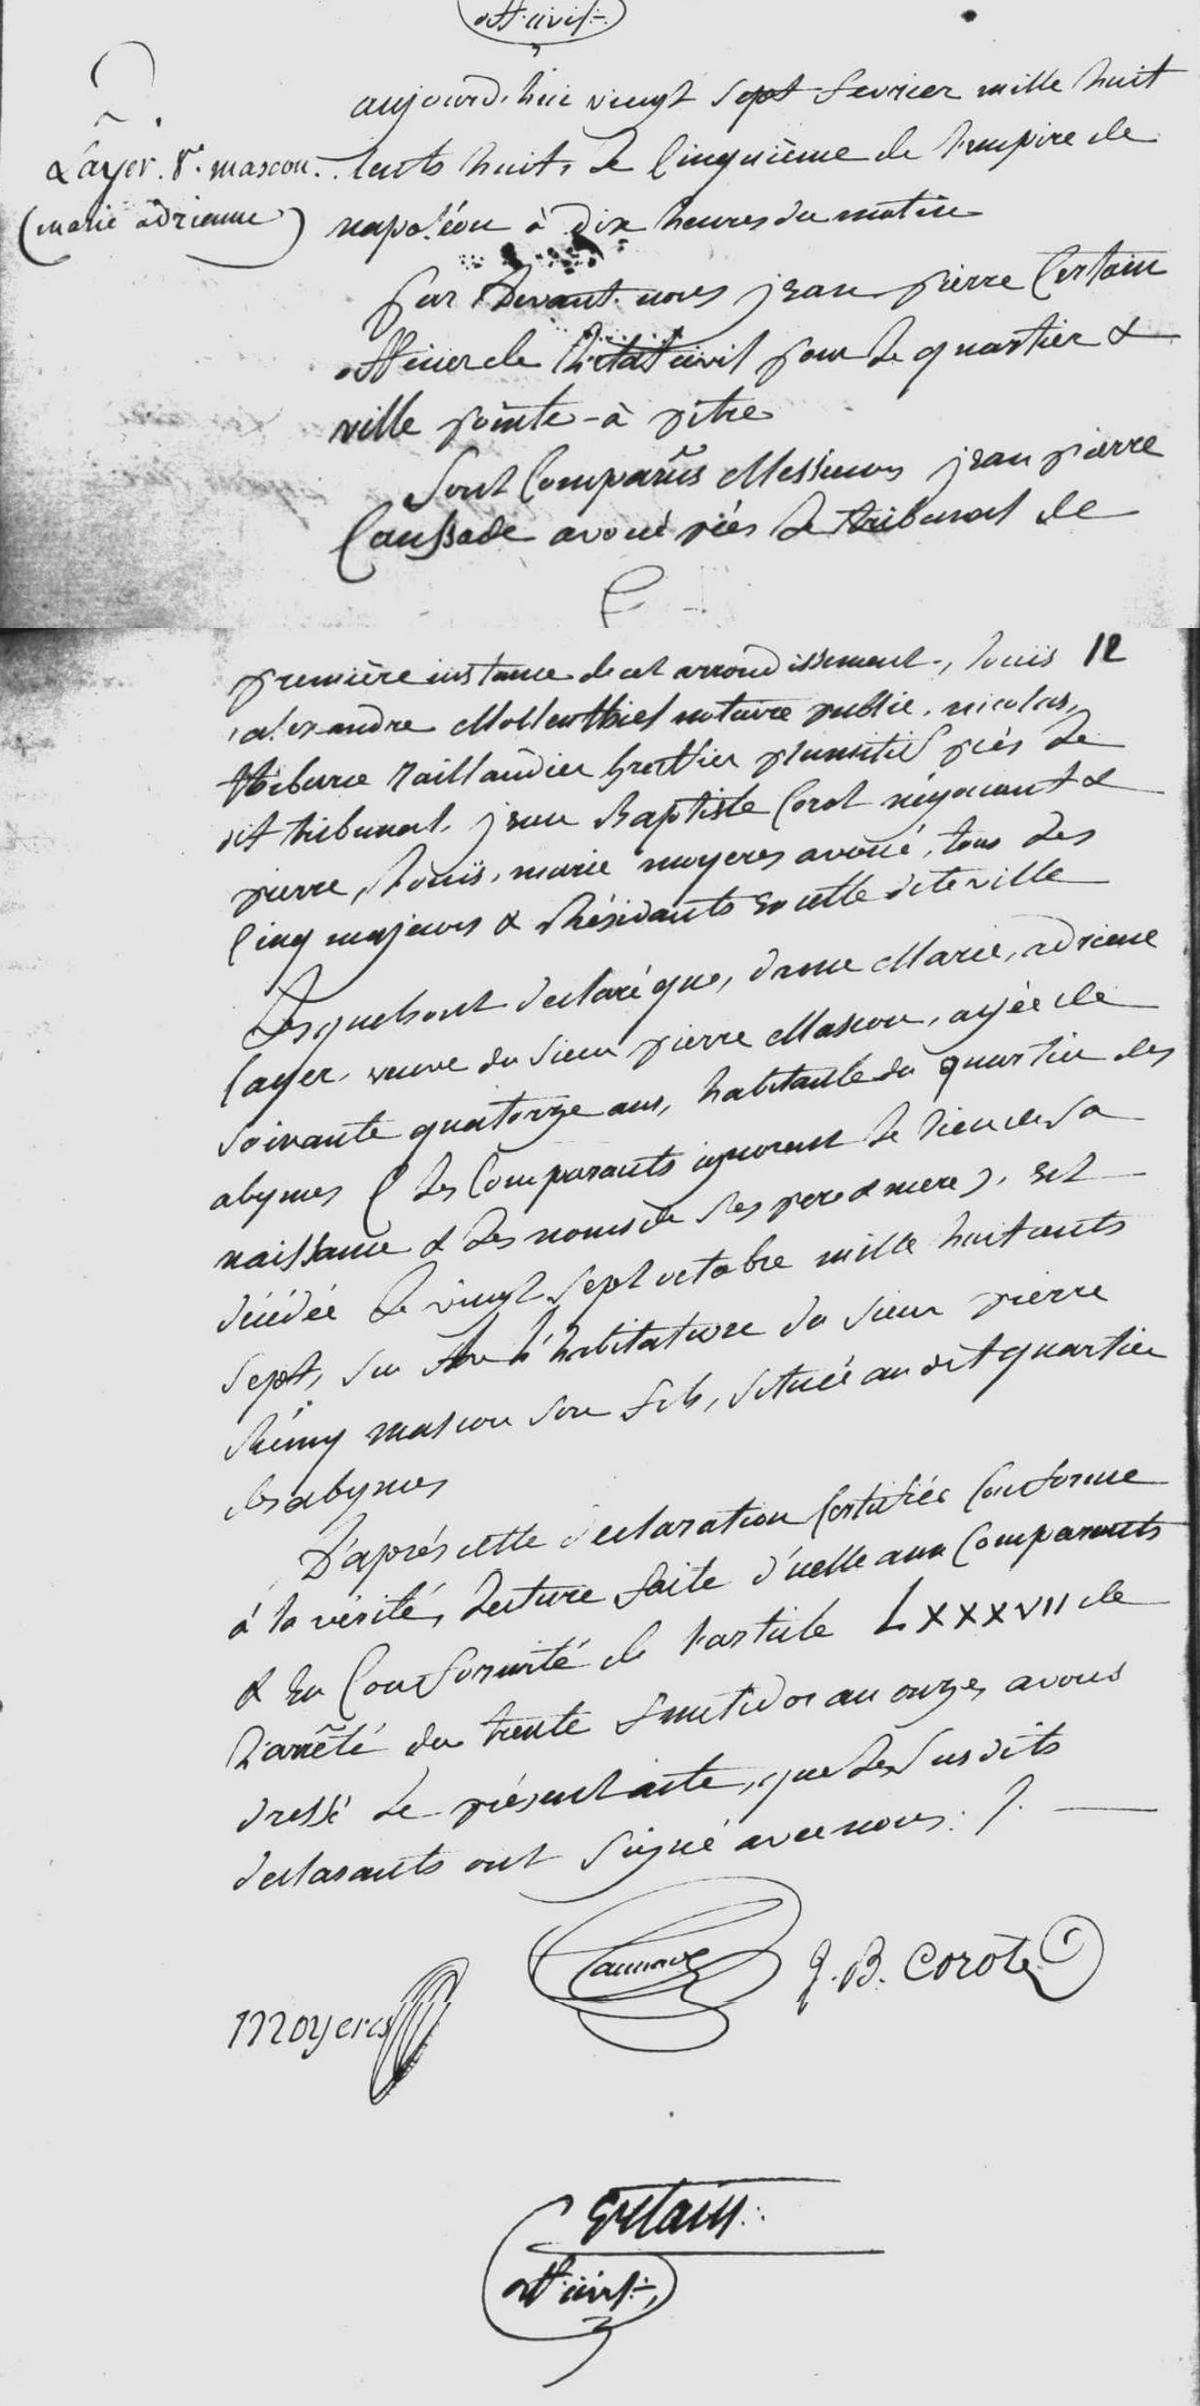 off: civil:
aujourd'hui vingt sept fevrier mille huit
Layer. Ve. mascou.
(marie adrienne)
cents huit, le cinquième de l'empire de
napoléon à dix heures du matin
par devant nous jean pierre Certain
officier de l'état civil pour le quartier &
ville pointe-à pitre
Sont Comparûs Messieurs jean pierre
Caussade avoué près le tribunal de
première instance de cet arrondissement, Louis 12
alexandre Mollenthiel notaire public. nicolas,
tiburce Taillandier Greffier plumitif près le
dit tribunal, jean Baptiste Corot négociant &
pierre, Louis, marie moyeres avoué, tous les
Cinq majeurs & Résidants en cette dite ville
Lesquels ont declaré que, dame Marie, adriene
Layer, veuve du Sieur pierre Mascou, agée de
soixante quatorze ans, habitante du quartier des
abymes (les Comparants ignorent le lieu de sa
naissance & les noms de ses pere & mere), est
décédée le vingt sept octobre mille huit cents
sept, sur l'habitature du sieur pierre
Rémy mascou son fils, située au dit quartier
des abymes
D'après cette declaration Certifiée Conforme
à la vérité, lecture faite d'icelle aux Comparants
& En Conformité de l'article LXXXVII de
L'arrêté du trente fructidor an onze, avons
dressé le présent acte, que les susdits
declarants ont signé avec nous: /.
J. B. Corot
Moyeres
Certain
off: civil: